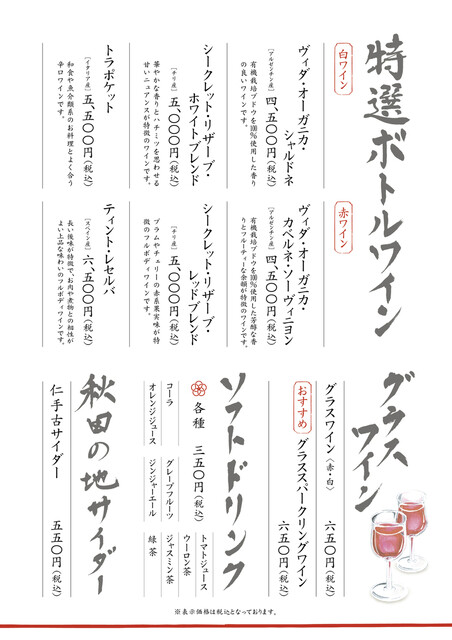 特選ボトルワイン
白ワイン
ヴィダ・オーガニカ・
シャルドネ
［アルゼンチン産］ 四、五〇〇円（税込）
有機栽培ブドウを100%使用した香り
の良いワインです。
シークレット・リザーブ・
ホワイトブレンド
［チリ産］ 五、〇〇〇円（税込）
華やかな香りとハチミツを思わせる
甘いニュアンスが特徴のワインです。
トラポケット
［イタリア産］ 五、五〇〇円（税込）
和食や魚介類系のお料理とよく合う
辛口ワインです。
赤ワイン
ヴィダ・オーガニカ・
カベルネ・ソーヴィニヨン
［アルゼンチン産］ 四、五〇〇円（税込）
有機栽培ブドウを100%使用した芳醇な香
りとフルーティーな余韻が特徴のワインです。
シークレット・リザーブ・
レッドブレンド
［チリ産］ 五、〇〇〇円（税込）
プラムやチェリーの赤系果実味が特
徴のフルボディワインです。
ティント・レセルバ
［スペイン産］ 六、五〇〇円（税込）
長い後味が特徴で、お肉や煮物との相性が
よい上品な味わいのフルボディワインです。
グラスワイン
グラスワイン〈赤・白〉 六五〇円（税込）
おすすめ
グラススパークリングワイン
六五〇円（税込）
ソフトドリンク
各種 三五〇円（税込）
コーラ
オレンジジュース
グレープフルーツ
ジンジャーエール
トマトジュース
ウーロン茶
ジャスミン茶
緑茶
秋田の地サイダー
仁手古サイダー 五五〇円（税込）
※表示価格は税込となっております。